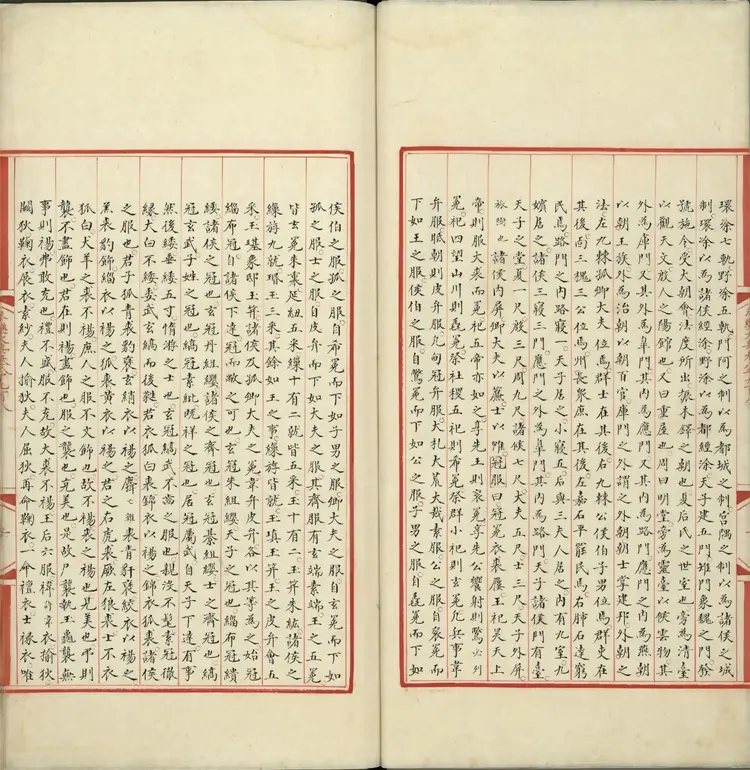 環涂七軌野涂五軌門阿之制以為都城之制宮隅之制以為諸侯之城
制環涂以為諸侯經涂野涂以為都經涂天子建五門雉門象魏之門發
號施令受大朝會法度所出振木鐸之朝也夏后氏之世室也旁為清臺
以觀天文放人之陽館也又曰重屋也周曰明堂旁為靈臺以候雲物其
外為庫門又其外為皋門其內為應門又其內為路門應門之內為燕朝
以朝王族外為治朝以朝百官庫門之外謂之外朝朝士掌建邦外朝之
法左九棘孤卿大夫位焉群士在其後右九棘公侯伯子男位焉群吏在
其後面三槐三公位焉州長眾庶在其後左嘉石平罷民焉右肺石達窮
民焉路門之內路寢一天子居之小寢五后與三夫人居之內有九室九
嬪居之諸侯三寢三門應門之外為皋門其內為路門天子諸侯門有臺
天子之堂夏一尺殷三尺周九尺諸侯七尺大夫五尺士三尺天子外屏
旅樹也諸侯內屏卿大夫以簾士以帷冠服曰冠冕衣裘屨王祀昊天上
帝則服大裘而冕祀五帝亦如之享先王則袞冕享先公饗射則鷩必列
冕祀四望山川則毳冕祭社稷五祀則希冕祭群小祀則玄冕凡兵事韋
弁服眡朝則皮弁服凡甸冠弁服大札大荒大烖素服公之服自袞冕而
下如王之服侯伯之服自鷩冕而下如公之服子男之服自毳冕而下如
侯伯之服孤之服自希冕而下如子男之服卿大夫之服自玄冕而下如
孤之服士之服自皮弁而下如大夫之服其齊服有玄端素端王之五冕
皆玄冕朱裏延紐五采繅十有二就皆五采玉十有二玉笄朱紘諸侯之
繅斿九就瑉玉三采其餘如王之事繅斿皆就玉瑱玉笄王之皮弁會五
采玉璂象邸玉笄諸侯及孤卿大夫之冕韋弁皮弁各以其等為之始冠
緇布冠自諸侯下達冠而敝之可也玄冠朱組纓天子之冠也緇布冠繢
緌諸侯之冠也玄冠丹組纓諸侯之齊冠也玄冠綦組纓士之齊冠也縞
冠玄武子姓之冠也縞冠素紕既祥之冠也居冠屬武自天子下達有事
然後緌垂緌五寸惰游之士也玄冠縞武不齒之服也親沒不髦素冠徹
緣大白不緌委武玄縞而後蕤君衣狐白裘錦衣以裼之錦衣狐裘諸侯
之服也君子狐青裘豹褎玄綃衣以裼之麛雜裘青豻褎絞衣以裼之
羔裘豹飾緇衣以裼之狐裘黃衣以裼之君之右虎裘厥左狼裘士不衣
狐白犬羊之裘不裼庶人之服不文飾也故不裼裘之裼也見美也弔則
襲不盡飾也君在則裼盡飾也服之襲也充美也是故尸襲執玉龜襲無
事則裼弗敢充也禮不盛服不充故大裘不裼王后六服褘許韋衣揄狄
闕狄鞠衣展衣素紗夫人揄狄夫人屈狄再命鞠衣一命襢衣士褖衣唯